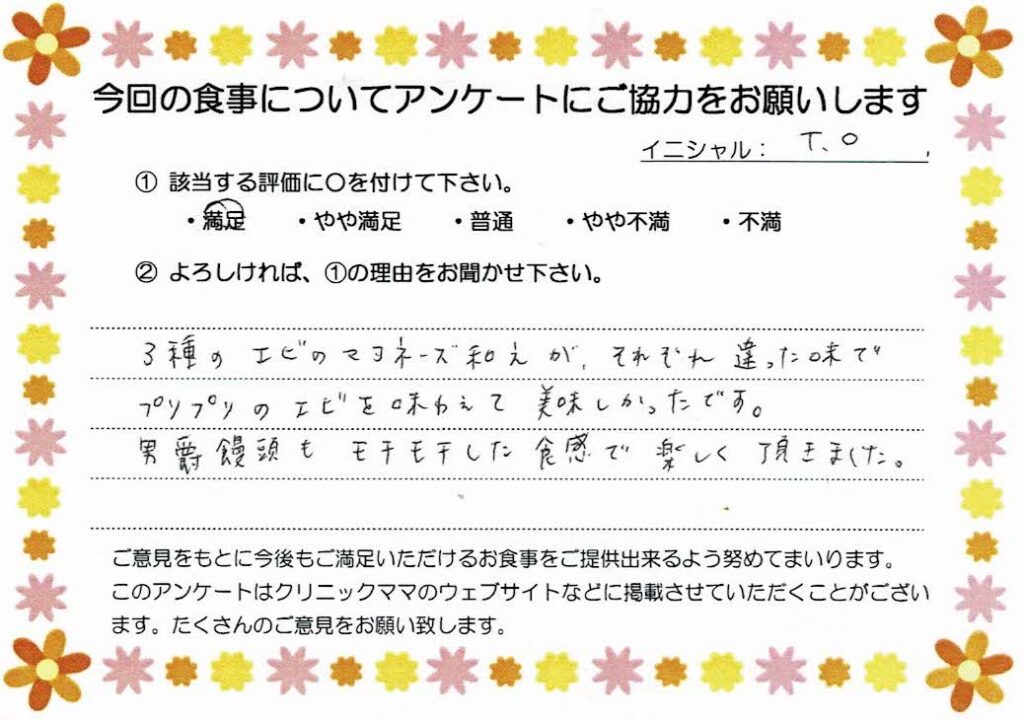 今回の食事についてアンケートにご協力をお願いします
イニシャル： T、O
① 該当する評価に○を付けて下さい。
・満足 ・やや満足 ・普通 ・やや不満 ・不満
② よろしければ、①の理由をお聞かせ下さい。
3種のエビのマヨネーズ和えが、それぞれ違った味で
プリプリのエビを味わえて美味しかったです。
男爵饅頭もモチモチした食感で楽しく頂きました。
ご意見をもとに今後もご満足いただけるお食事をご提供出来るよう努めてまいります。
このアンケートはクリニックママのウェブサイトなどに掲載させていただくことがござい
ます。たくさんのご意見をお願い致します。